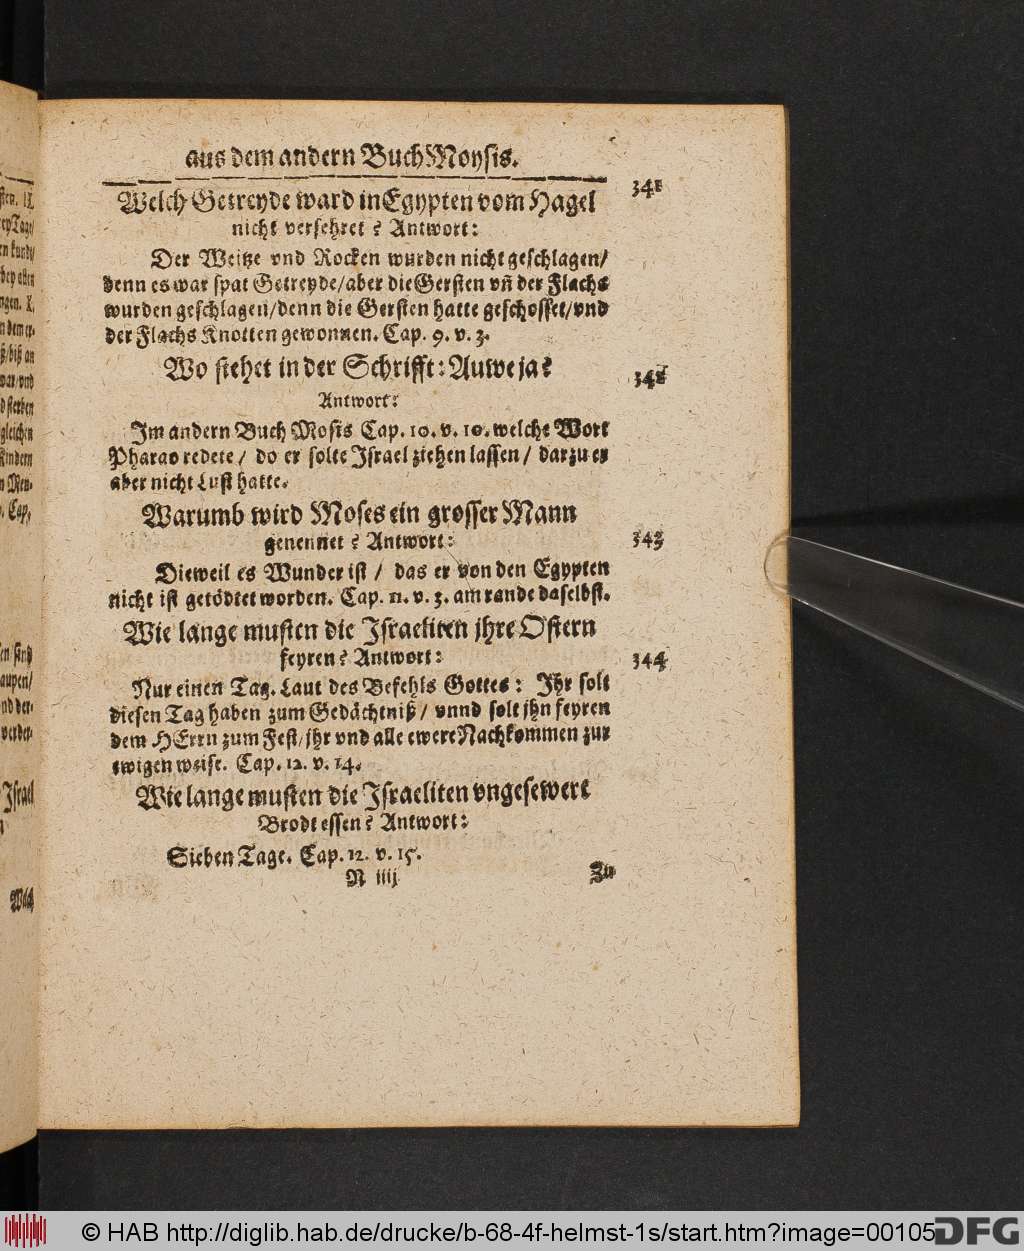 aus dem andern Buch Moysis.
Welch Getreyde ward in Egypten vom Hagel
341
nicht versehret? Antwort:
Der Weitze vnd Rocken wurden nicht geschlagen/
denn es war spat Getreyde/aber die Gersten vñ der Flachs
wurden geschlagen/denn die Gersten hatte geschosset/vnd
der Flachs Knotten gewonnen. Cap. 9. v. 3.
Wo stehet in der Schrifft: Auwe ja?
342
Antwort:
Im andern Buch Mosis Cap. 10. v. 10. welche Wort
Pharao redete / do er solte Israel ziehen lassen / darzu er
aber nicht Lust hatte.
Warumb wird Moses ein grosser Mann
genennet? Antwort:
343
Dieweil es Wunder ist / das er von den Egypten
nicht ist getödtet worden. Cap. 11. v. 3. am rande daselbst.
Wie lange musten die Israeliten jhre Ostern
feyren? Antwort:
344
Nur einen Tag. Laut des Befehls Gottes: Ihr solt
diesen Tag haben zum Gedächtniß / vnnd solt jhn feyren
dem HErrn zum Fest/jhr vnd alle ewere Nachkommen zur
ewigen weise. Cap. 12. v. 14.
Wie lange musten die Israeliten vngesewert
Brodt essen? Antwort:
Sieben Tage. Cap. 12. v. 15.
N iiij
Zu
© HAB http://diglib.hab.de/drucke/b-68-4f-helmst-1s/start.htm?image=00105
DFG